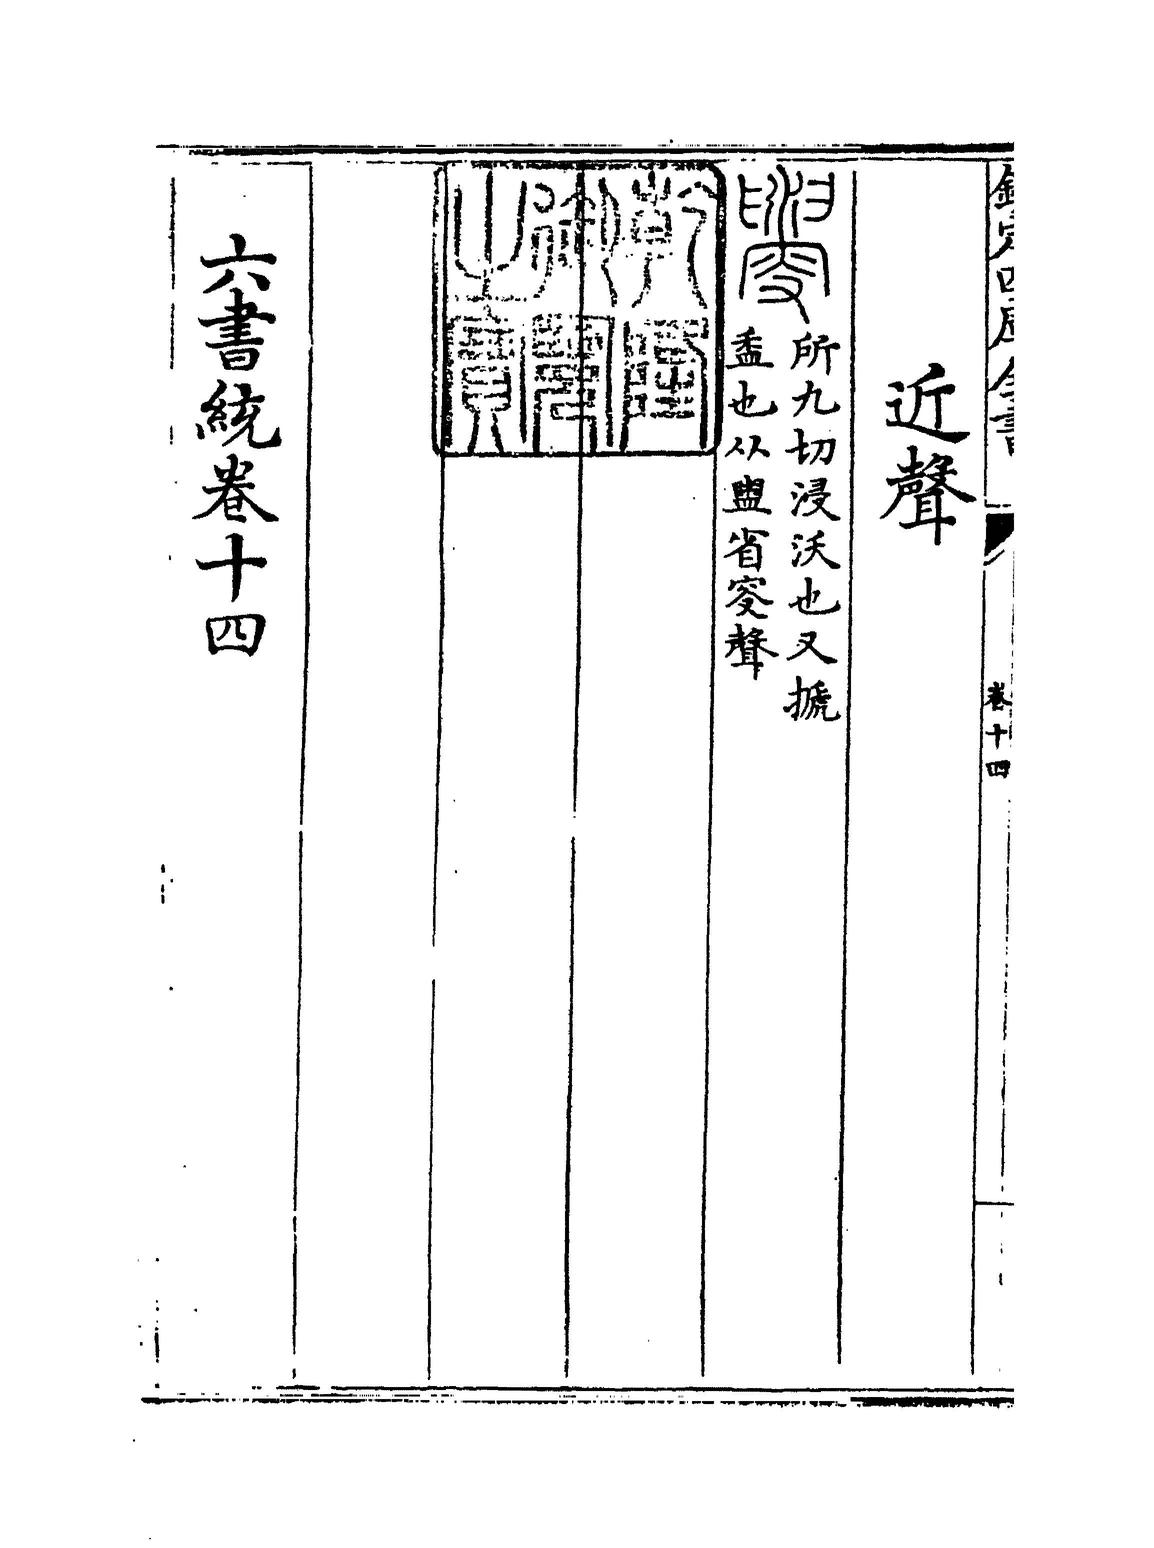 欽定四庫全書
卷十四
近聲
所九切浸沃也又搋
盉也从盥省窔聲
乾隆御覽之寶
六書統卷十四